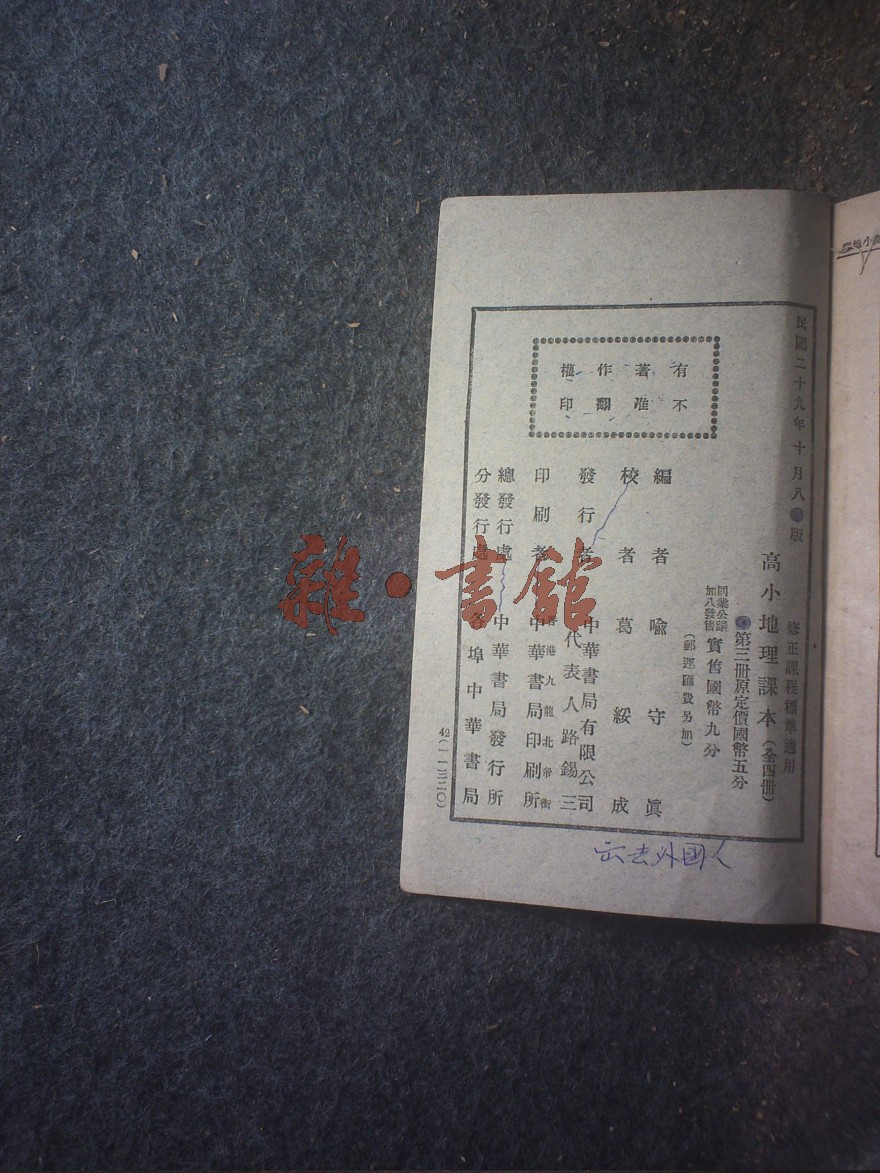 民國二十九年十月八版
修正課程標準適用
高小地理課本（全四冊）
第三冊原定價國幣五分
同業公議
加八發售
實售國幣九分
（郵運匯費另加）
有著作權
不准翻印
編者 喩守眞
校者 葛綏成
發行者 中華書局有限公司
代表人路錫三
印刷者 香港九龍北帝街
中華書局印刷所
總發行處 中華書局發行所
分發行處 各埠中華書局
42（一一三二〇）
外國人
雜·書館